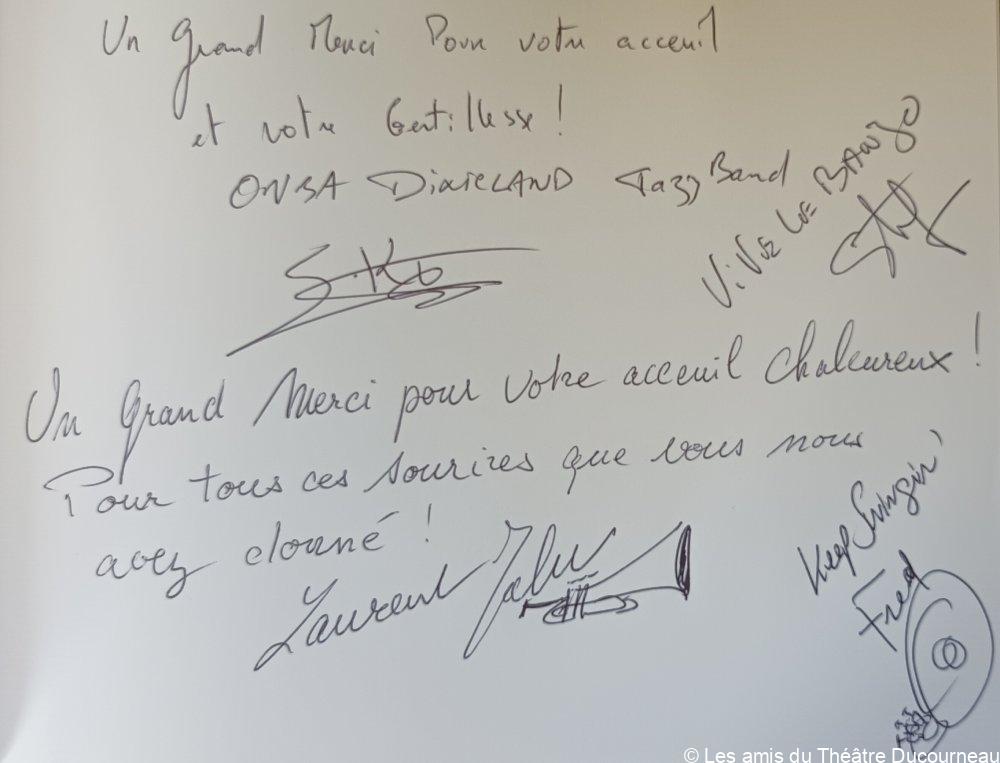 Un grand Merci Pour votre acceuil
et votre Gentillesse !
ONBA DIXIELAND Jazz Band
ViVE LE BANJO
Un Grand Merci pour votre acceuil chaleureux !
Pour tous ces sourires que vous nous
avez donné !
Laurent
Keep Swingin'
Fred
© Les amis du Théâtre Ducourneau